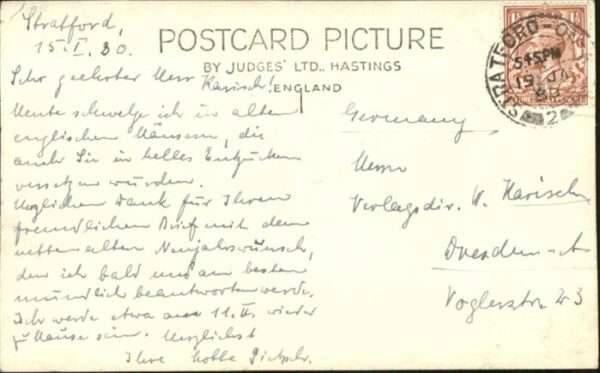 Stratford,
15.I.30.
POSTCARD PICTURE
BY JUDGES' LTD., HASTINGS
ENGLAND
Sehr geehrter Herr Karisch!
Heute schwelge ich in alten
englischen Häusern, die
auch Sie in helles Entzücken
versetzen würden.
Herzlichen Dank für Ihren
freundlichen Brief mit dem
netten alten Neujahrswunsch,
den ich bald und am besten
mündlich beantworten werde.
Ich werde etwa am 11.II. wieder
zu Hause sein. Herzlichst
Ihre
Germany
Herrn
Verlagsdir. W. Karisch
Dresden-A
Voglerstr 43
STRATFORD-ON
545PM
19 JA
30
2